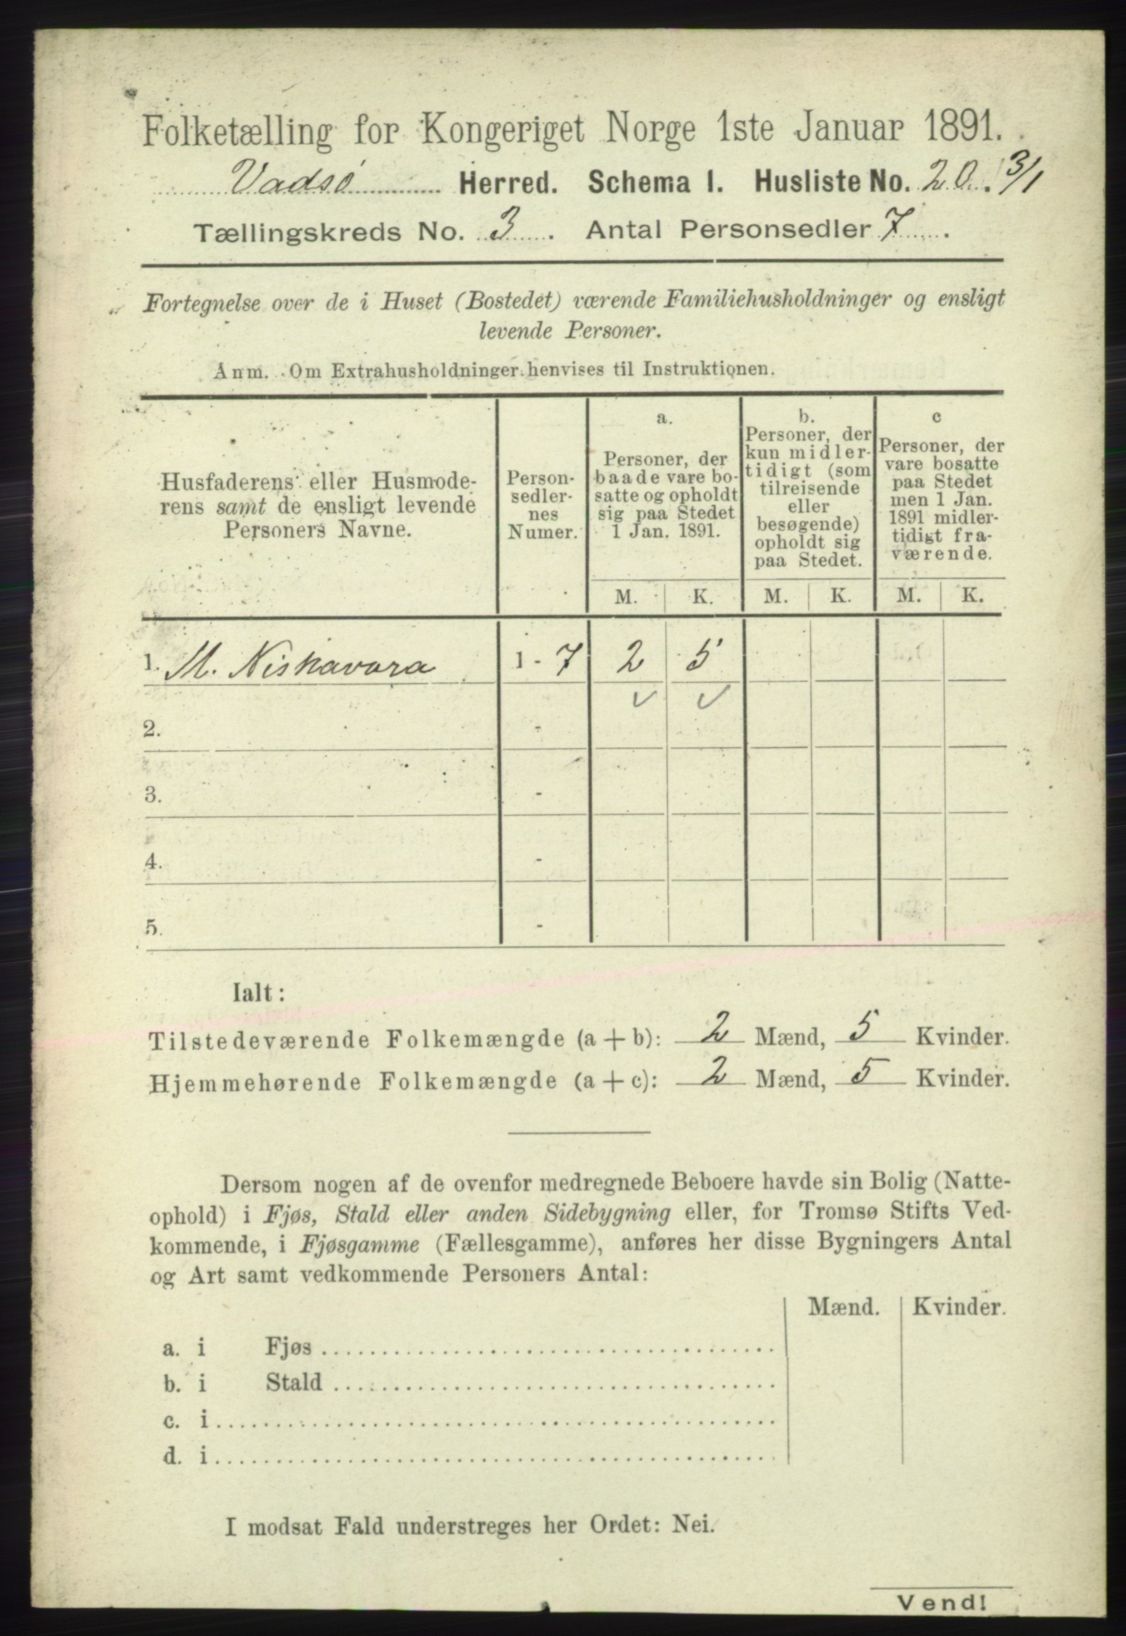 Folketælling for Kongeriget Norge 1ste Januar 1891.
Vadsø Herred. Schema I. Husliste No. 20. 3/1
Tællingskreds No. 3. Antal Personsedler 7.
Fortegnelse over de i Huset (Bostedet) værende Familiehusholdninger og ensligt
levende Personer.
Anm. Om Extrahusholdninger henvises til Instruktionen.
Husfaderens eller Husmode-
rens samt de ensligt levende
Personers Navne.
Person-
sedler-
nes
Numer.
a.
Personer, der
baade vare bo-
satte og opholdt
sig paa Stedet
1 Jan. 1891.
b.
Personer, der
kun midler-
tidigt (som
tilreisende
eller
besøgende)
opholdt sig
paa Stedet.
c
Personer, der
vare bosatte
paa Stedet
men 1 Jan.
1891 midler-
tidigt fra-
værende.
M. K. M. K. M. K.
1. M. Niskavara 1 - 7 2 5
2. -
3. -
4. -
5. -
Ialt:
Tilstedeværende Folkemængde (a + b): 2 Mænd, 5 Kvinder.
Hjemmehørende Folkemængde (a + c): 2 Mænd, 5 Kvinder.
Dersom nogen af de ovenfor medregnede Beboere havde sin Bolig (Natte-
ophold) i Fjøs, Stald eller anden Sidebygning eller, for Tromsø Stifts Ved-
kommende, i Fjøsgamme (Fællesgamme), anføres her disse Bygningers Antal
og Art samt vedkommende Personers Antal:
Mænd. Kvinder.
a. i Fjøs
b. i Stald
c. i
d. i
I modsat Fald understreges her Ordet: Nei.
Vend!